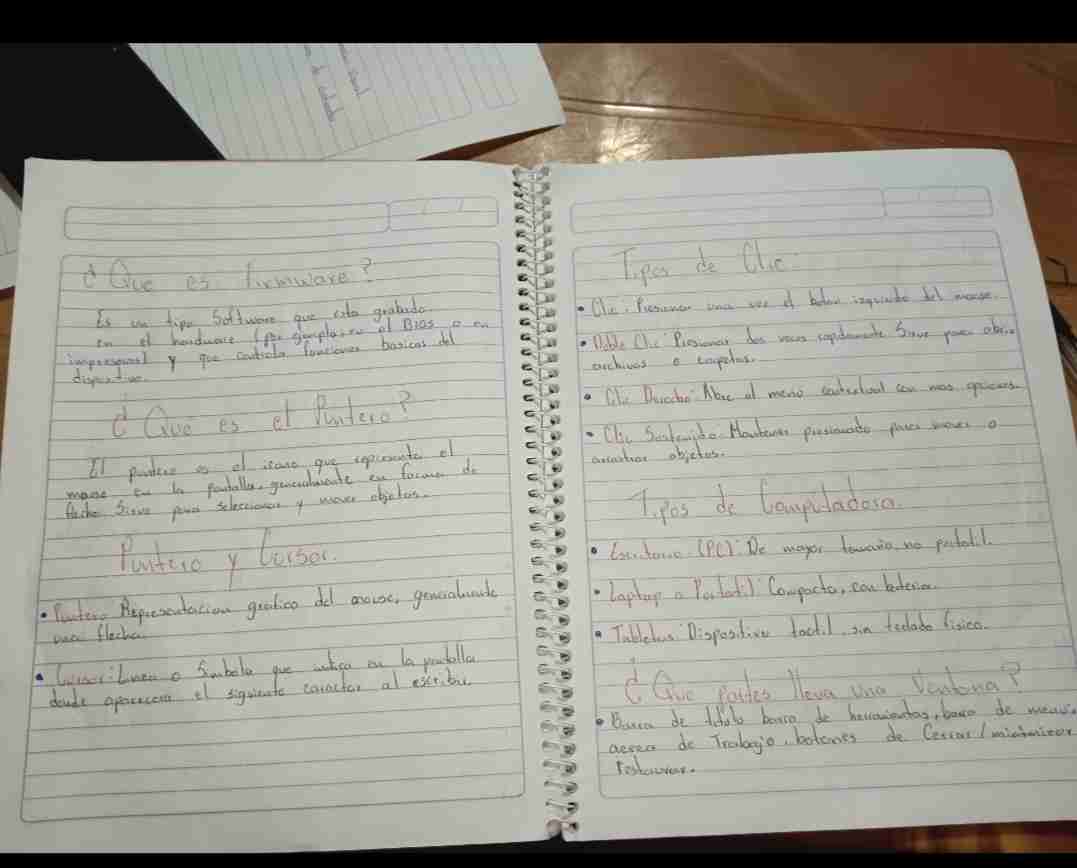 ¿Que es firmware?
Es un tipo Software que esta grabado
en el hardware (por ejemplo, en el BIOS o en
impresoras) y que controla funciones basicas del
dispositivo.
¿Que es el Puntero?
El puntero es el icono que representa el
mouse en la pantalla, generalmente en forma de
flecha Sirve para seleccionar y mover objetos.
Puntero y Cursor.
• Puntero Representacion grafico del mouse, generalmente
una flecha.
• Cursor: Linea o Simbolo que indica en la pantalla
donde aparecera el siguiente caracter al escribir
Tipos de Clic
• Clic: Presionar una vez el boton izquierdo del mouse.
• Doble Clic: Presionar dos veces rapidamente Sirve para abrir
archivos o carpetas.
• Clic Derecho: Abre el menú contextual con mas opciones.
• Clic Sostenido: Mantener presionado para mover o
arrastrar objetos.
Tipos de Computadora.
• Escritorio (PC): De mayor tamaño, no portatil.
• Laptop o Portatil: Compacto, con bateria.
• Tabletas: Dispositivo tactil, sin teclado fisico.
¿Que partes lleva una Ventana?
• Barra de titulo barra de herramientas, barra de menú.
de Trabajo, botones de Cerrar / minimizar
restaurar.